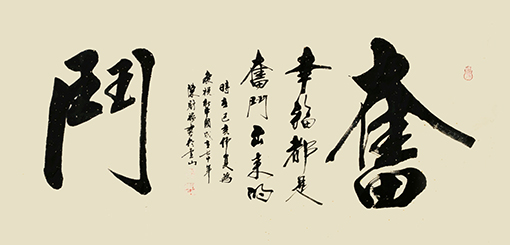 奮
幸福都是
奮鬥出来的
時在己亥仲夏為
慶祝新中國成立七十年
鬥